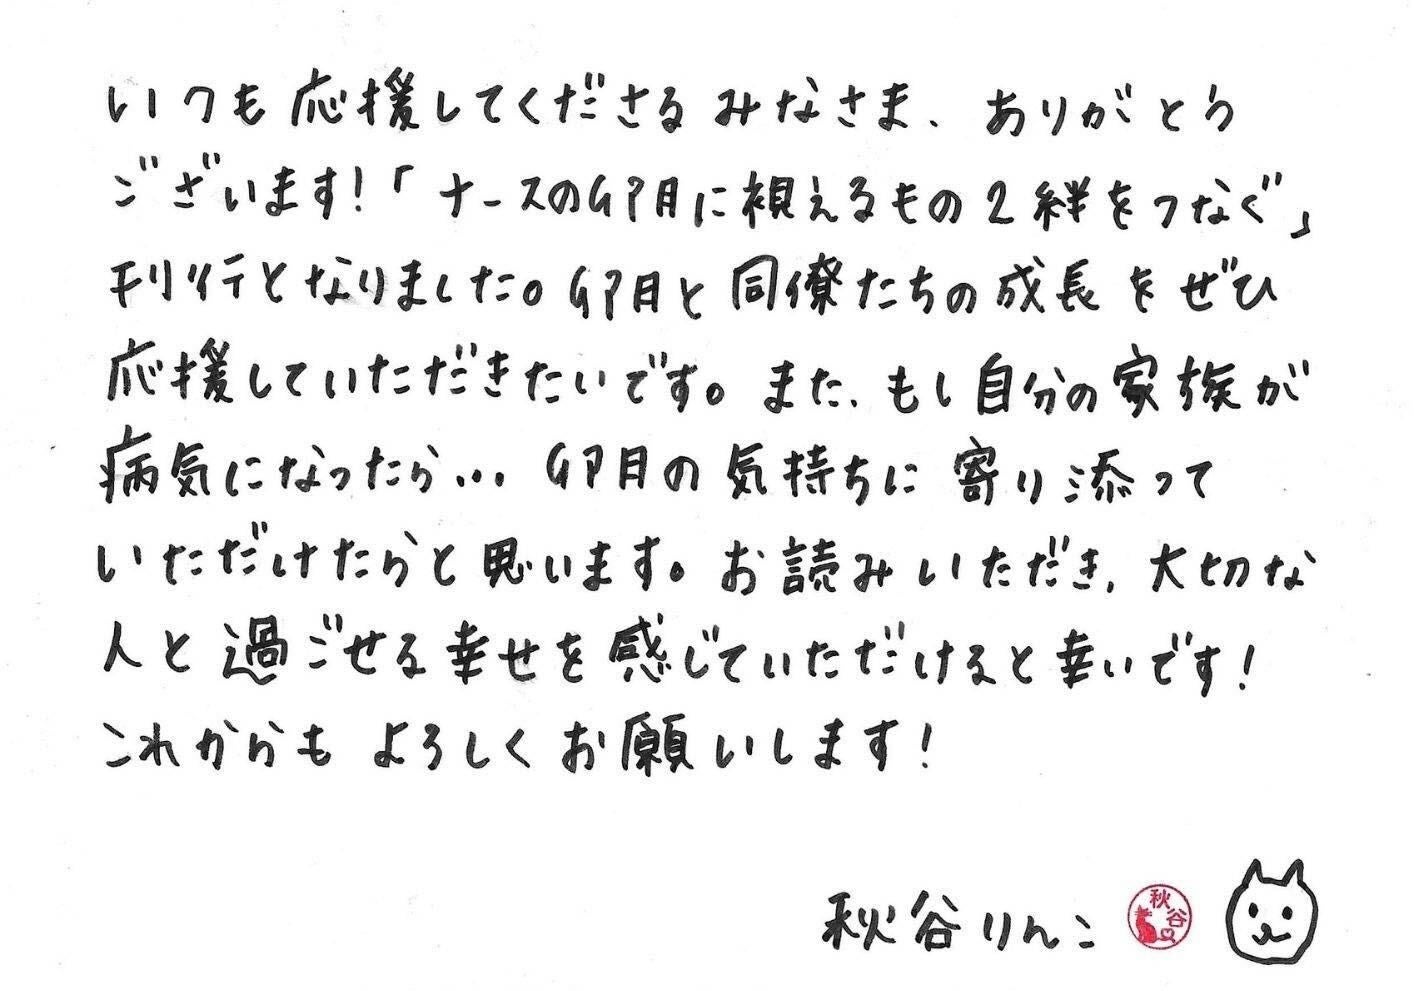 いつも応援してくださるみなさま、ありがとう
ございます!「ナースの卯月に視えるもの2絆をつなぐ」
刊行となりました。卯月と同僚たちの成長をぜひ
応援していただきたいです。また、もし自分の家族が
病気になったら...卯月の気持ちに寄り添って
いただけたらと思います。お読みいただき、大切な
人と過ごせる幸せを感じていただけると幸いです!
これからもよろしくお願いします!
秋谷りんこ
秋谷